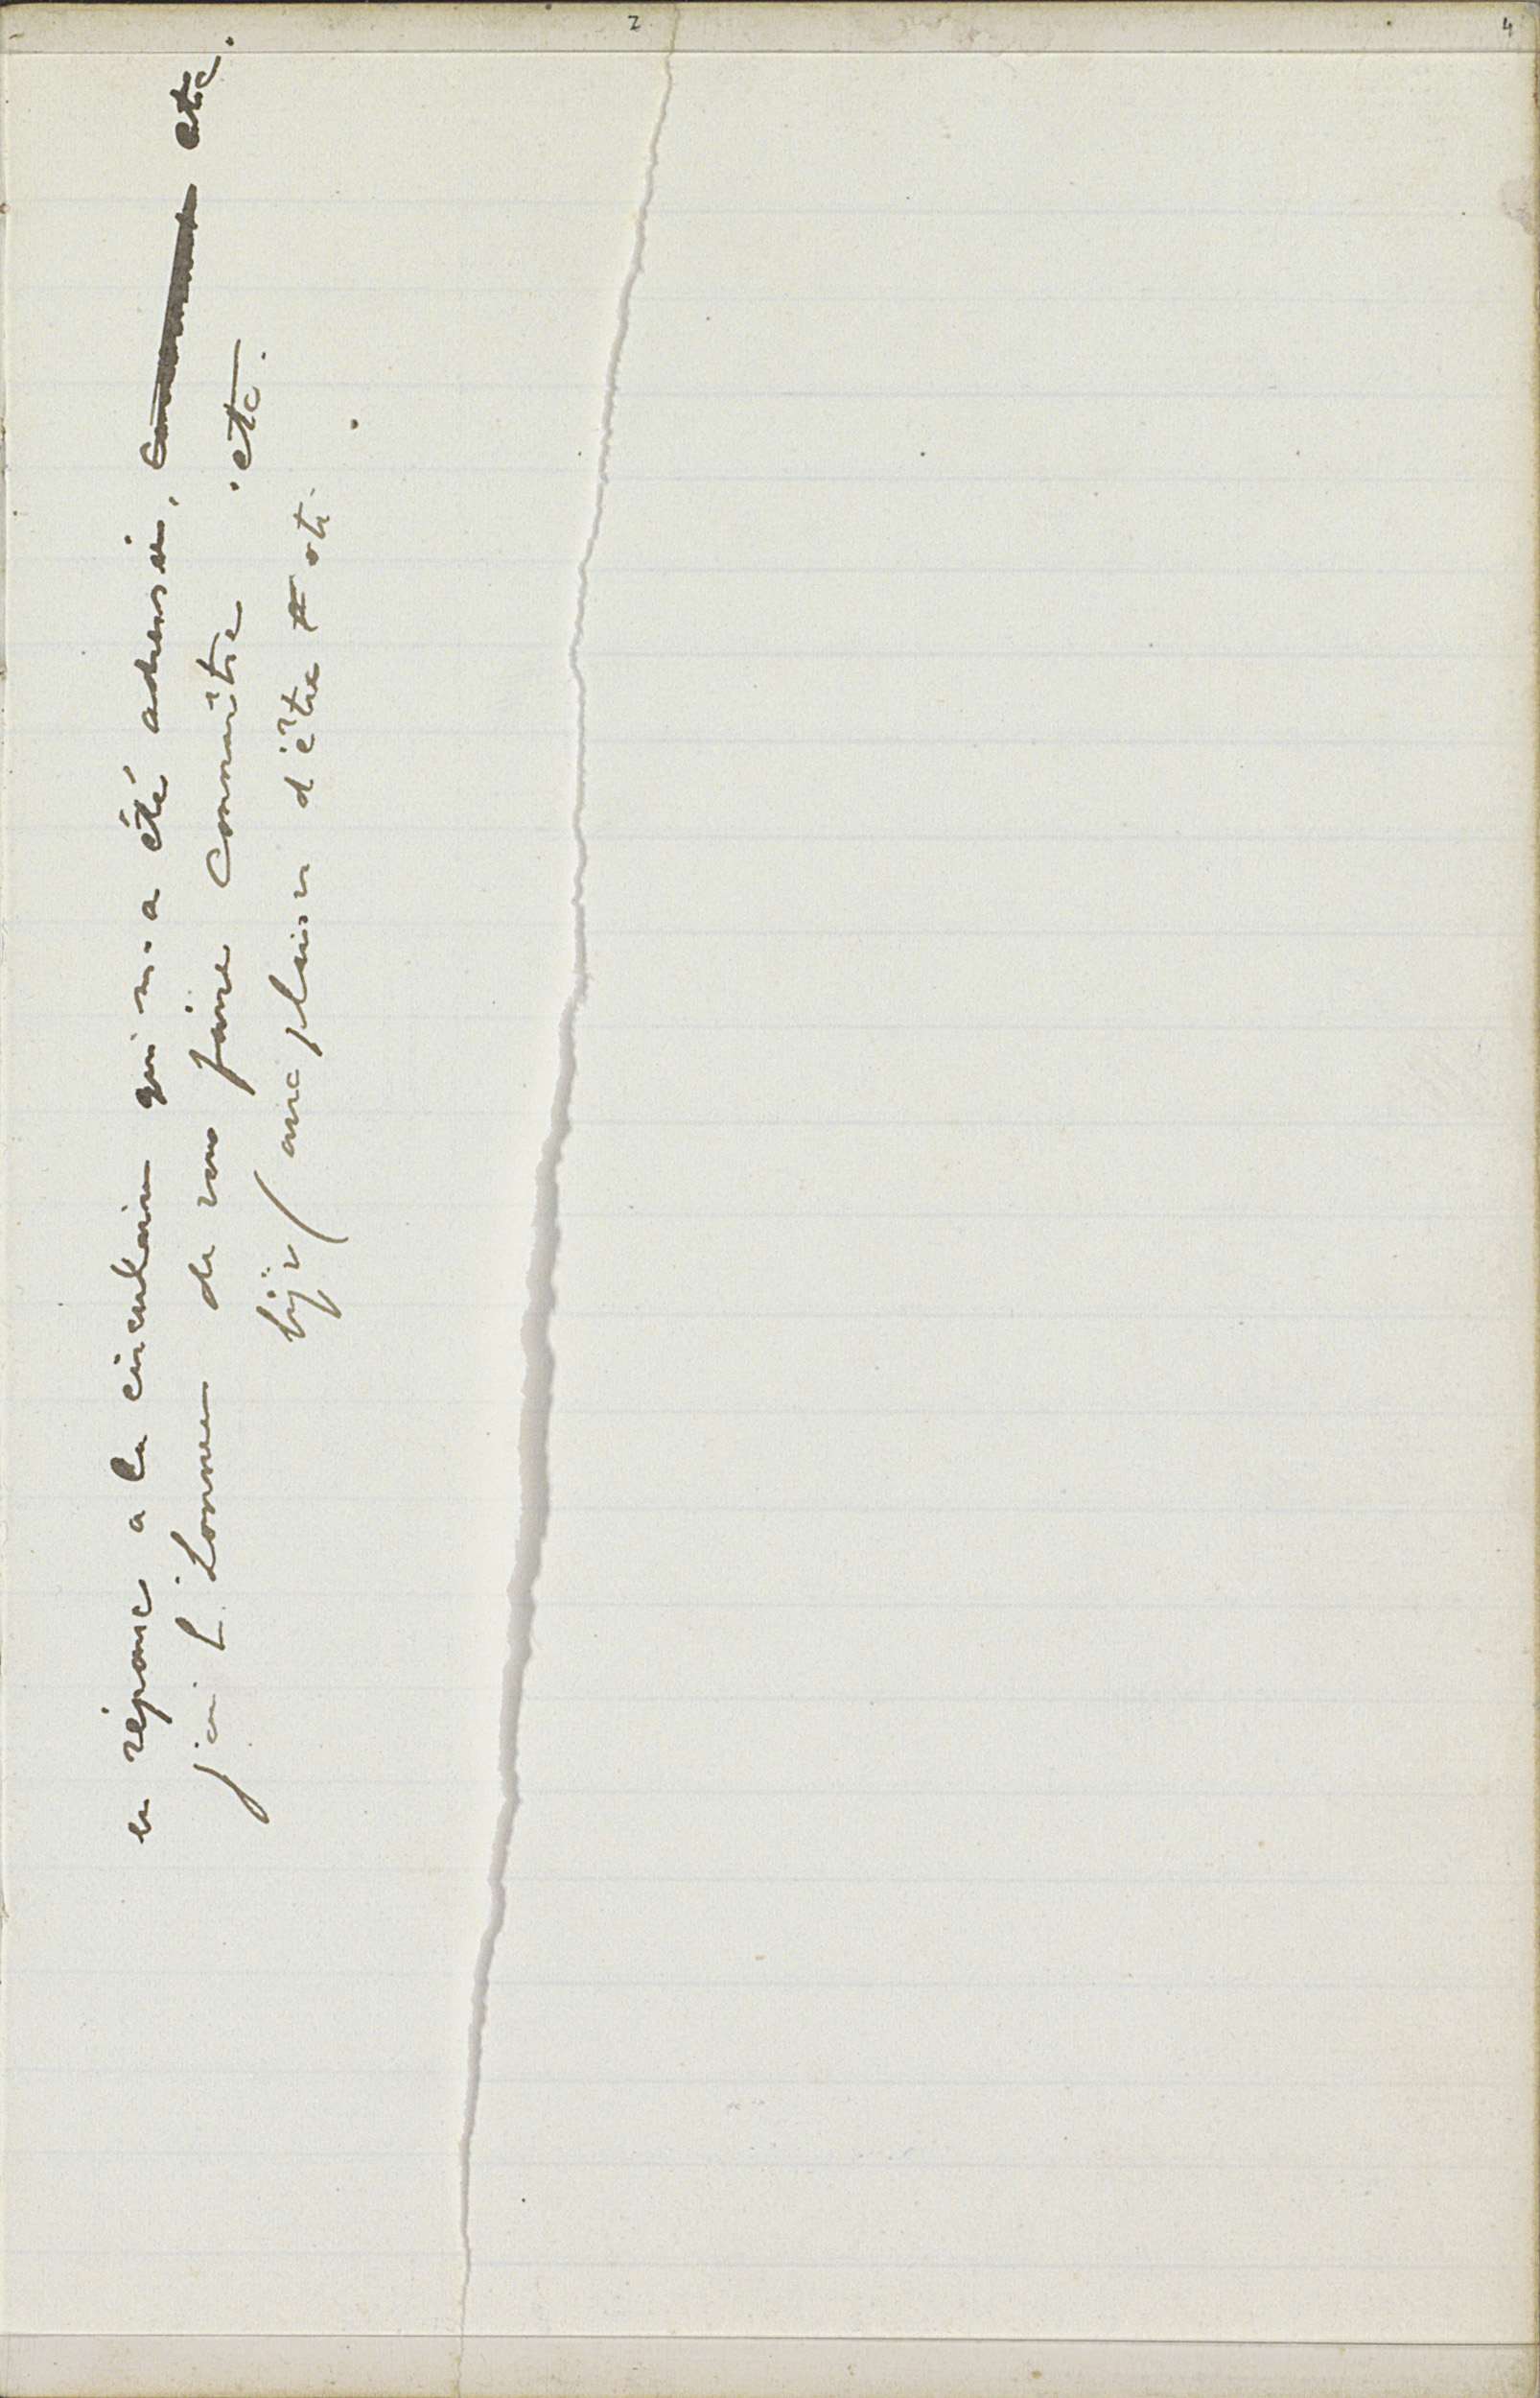 2
4
en réponse a la circulaire qui m'a été adressée, etc.
j'ai l'honneur de vous faire connaître . etc.
avec plaisir d'être etc.